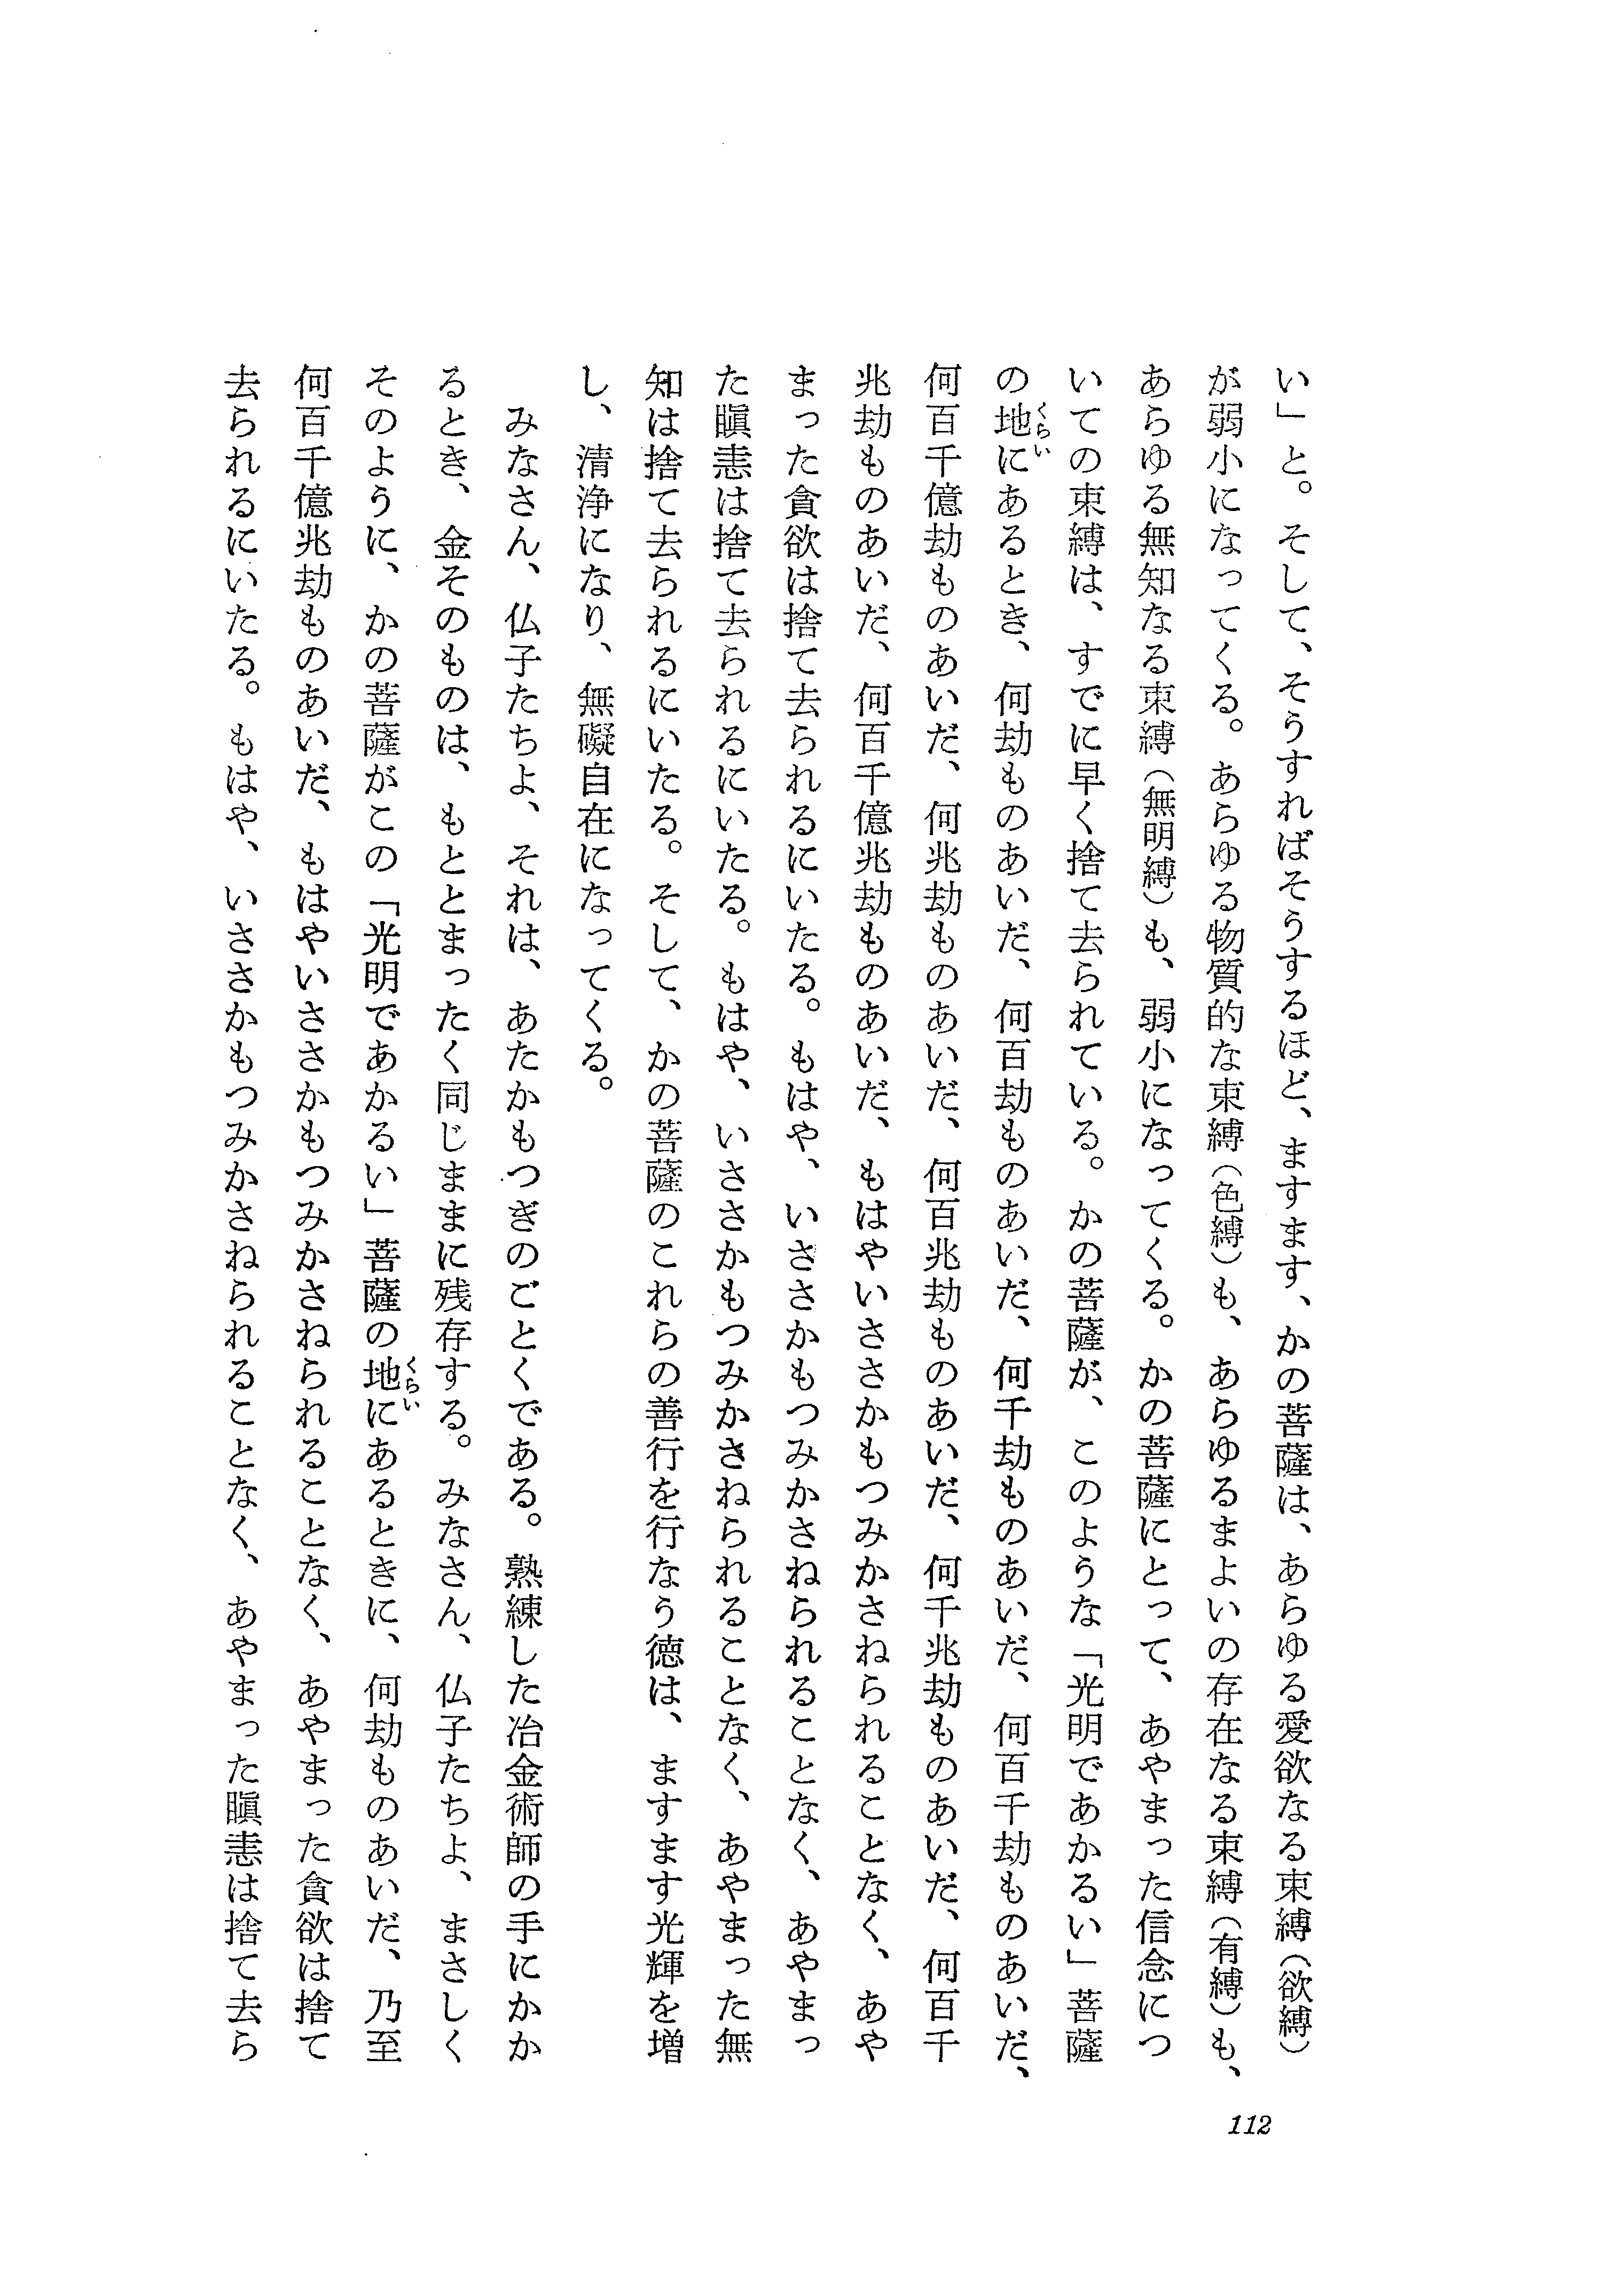 い」と。そして、そうすればそうするほど、ますます、かの菩薩は、あらゆる愛欲なる束縛（欲縛）
が弱小になってくる。あらゆる物質的な束縛（色縛）も、あらゆるまよいの存在なる束縛（有縛）も、
あらゆる無知なる束縛（無明縛）も、弱小になってくる。かの菩薩にとって、あやまった信念につ
いての束縛は、すでに早く捨て去られている。かの菩薩が、このような「光明であかるい」菩薩
の地にあるとき、何劫ものあいだ、何百劫ものあいだ、何千劫ものあいだ、何百千劫ものあいだ、
くらい
何百千億劫ものあいだ、何兆劫ものあいだ、何百兆劫ものあいだ、何千兆劫ものあいだ、何百千
兆劫ものあいだ、何百千億兆劫ものあいだ、もはやいささかもつみかさねられることなく、あや
まった貪欲は捨て去られるにいたる。もはや、いささかもつみかさねられることなく、あやまっ
た瞋恚は捨て去られるにいたる。もはや、いささかもつみかさねられることなく、あやまった無
知は捨て去られるにいたる。そして、かの菩薩のこれらの善行を行なう徳は、ますます光輝を増
し、清浄になり、無礙自在になってくる。
みなさん、仏子たちよ、それは、あたかもつぎのごとくである。熟練した冶金術師の手にかか
るとき、金そのものは、もととまったく同じままに残存する。みなさん、仏子たちよ、まさしく
そのように、かの菩薩がこの「光明であかるい」菩薩の地にあるときに、何劫ものあいだ、乃至
くらい
何百千億兆劫ものあいだ、もはやいささかもつみかさねられることなく、あやまった貪欲は捨て
去られるにいたる。もはや、いささかもつみかさねられることなく、あやまった瞋恚は捨て去ら
112